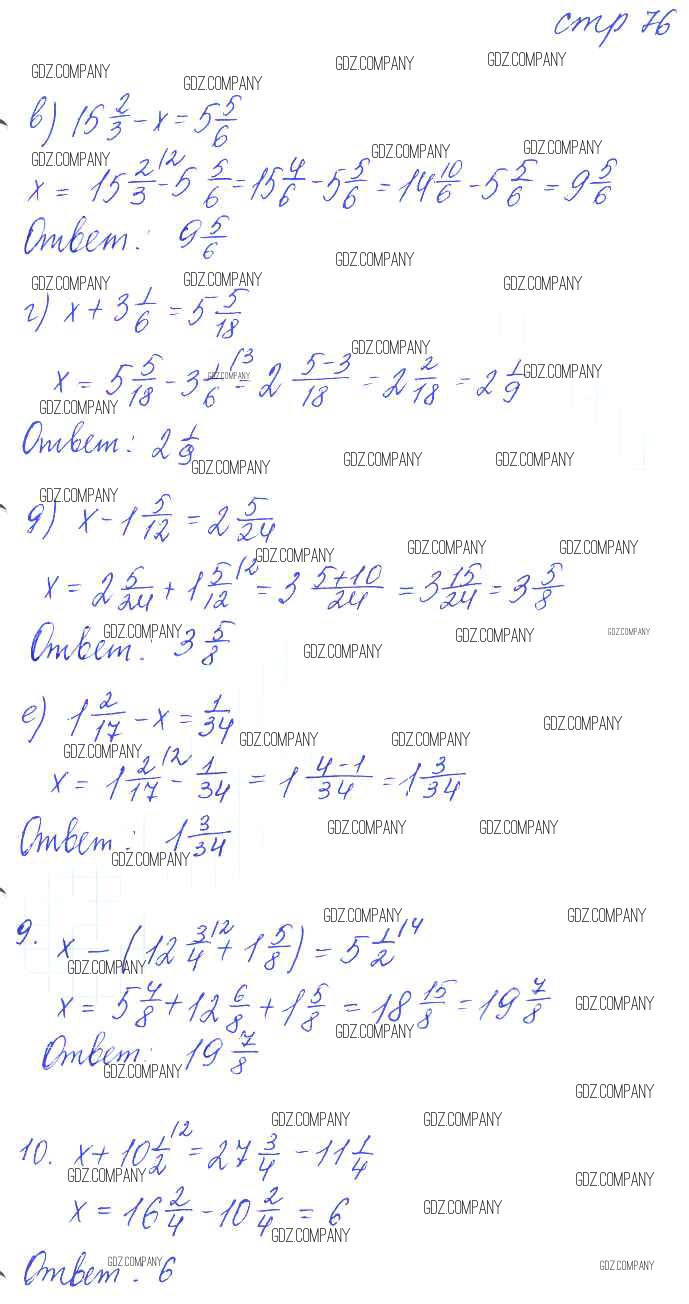 стр 76
GDZ.COMPANY GDZ.COMPANY GDZ.COMPANY GDZ.COMPANY
в) 15 2/3 - x = 5 5/6
GDZ.COMPANY GDZ.COMPANY GDZ.COMPANY
x = 15 2/3 |2 - 5 5/6 = 15 4/6 - 5 5/6 = 14 10/6 - 5 5/6 = 9 5/6
Ответ: 9 5/6
GDZ.COMPANY
GDZ.COMPANY GDZ.COMPANY GDZ.COMPANY
г) x + 3 1/6 = 5 5/18
GDZ.COMPANY
x = 5 5/18 - 3 1/6 |3 = 2 (5-3)/18 = 2 2/18 = 2 1/9
GDZ.COMPANY GDZ.COMPANY
GDZ.COMPANY
Ответ: 2 1/9
GDZ.COMPANY GDZ.COMPANY GDZ.COMPANY
GDZ.COMPANY
д) x - 1 5/12 = 2 5/24
GDZ.COMPANY GDZ.COMPANY GDZ.COMPANY
x = 2 5/24 + 1 5/12 |2 = 3 (5+10)/24 = 3 15/24 = 3 5/8
GDZ.COMPANY GDZ.COMPANY GDZ.COMPANY
Ответ: 3 5/8
GDZ.COMPANY
е) 1 2/17 - x = 1/34
GDZ.COMPANY
GDZ.COMPANY GDZ.COMPANY GDZ.COMPANY
x = 1 2/17 |2 - 1/34 = 1 (4-1)/34 = 1 3/34
Ответ: 1 3/34
GDZ.COMPANY GDZ.COMPANY
GDZ.COMPANY
GDZ.COMPANY GDZ.COMPANY
9. x - (12 3/4 |2 + 1 5/8) = 5 1/2 |4
GDZ.COMPANY
x = 5 4/8 + 12 6/8 + 1 5/8 = 18 15/8 = 19 7/8
GDZ.COMPANY
GDZ.COMPANY
Ответ: 19 7/8
GDZ.COMPANY
GDZ.COMPANY
GDZ.COMPANY GDZ.COMPANY
10. x + 10 1/2 |2 = 27 3/4 - 11 1/4
GDZ.COMPANY GDZ.COMPANY
x = 16 2/4 - 10 2/4 = 6
GDZ.COMPANY
GDZ.COMPANY
Ответ: 6
GDZ.COMPANY GDZ.COMPANY